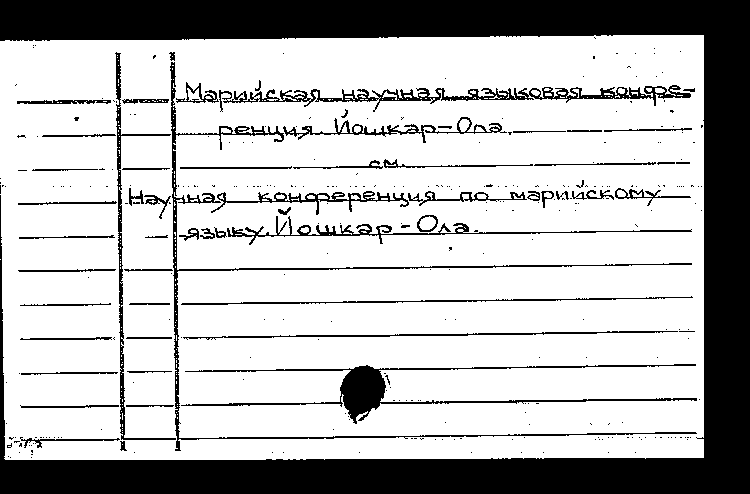 Марийская научная языковая конфе-
ренция Йошкар-Ола.
см.
Научная конференция по марийскому
языку. Йошкар-Ола.